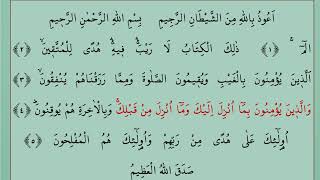 اَعُوذُ بِاللّٰهِ مِنَ الشَّيْطَانِ الرَّجِيمِ بِسْمِ اللّٰهِ الرَّحْمٰنِ الرَّحِيمِ
الٓمٓ ﴿١﴾ ذٰلِكَ الْكِتَابُ لَا رَيْبَۚ فِيهِۚ هُدًى لِلْمُتَّقِينَۙ ﴿٢﴾
اَلَّذِينَ يُؤْمِنُونَ بِالْغَيْبِ وَيُقِيمُونَ الصَّلٰوةَ وَمِمَّا رَزَقْنَاهُمْ يُنْفِقُونَۙ ﴿٣﴾
وَالَّذِينَ يُؤْمِنُونَ بِمَٓا اُنْزِلَ اِلَيْكَ وَمَٓا اُنْزِلَ مِنْ قَبْلِكَۚ وَبِالْاٰخِرَةِ هُمْ يُوقِنُونَۜ ﴿٤﴾
اُو۬لٰٓئِكَ عَلٰى هُدًى مِنْ رَبِّهِمْ وَاُو۬لٰٓئِكَ هُمُ الْمُفْلِحُونَ ﴿٥﴾
صَدَقَ اللّٰهُ الْعَظِيمُ